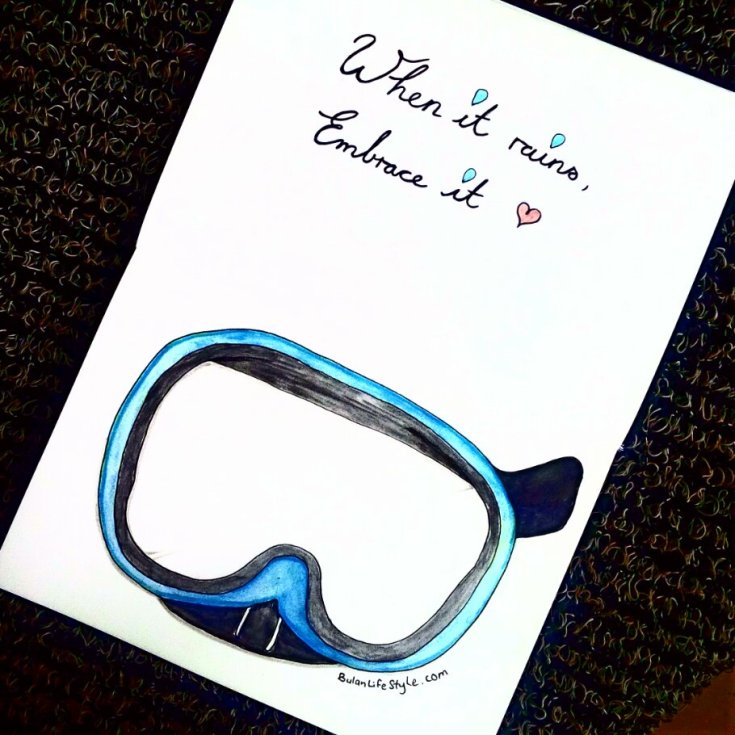 When it rains,
Embrace it
BulanLifeStyle.com